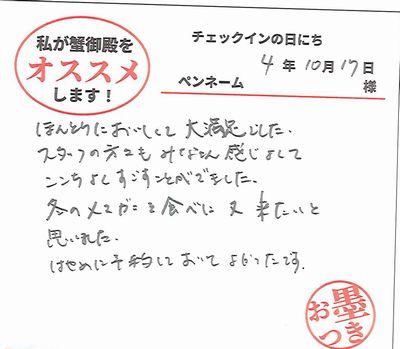 私が蟹御殿を
オススメ
します!
チェックインの日にち
4年10月17日
ペンネーム
様
ほんとうにおいしくて大満足でした。
スタッフの方々もみなさん感じよくて
ここちよくすごすことができました。
冬のメスガニを食べに又来たいと
思いました。
はやめに予約しておいてよかったです。
お墨
つき